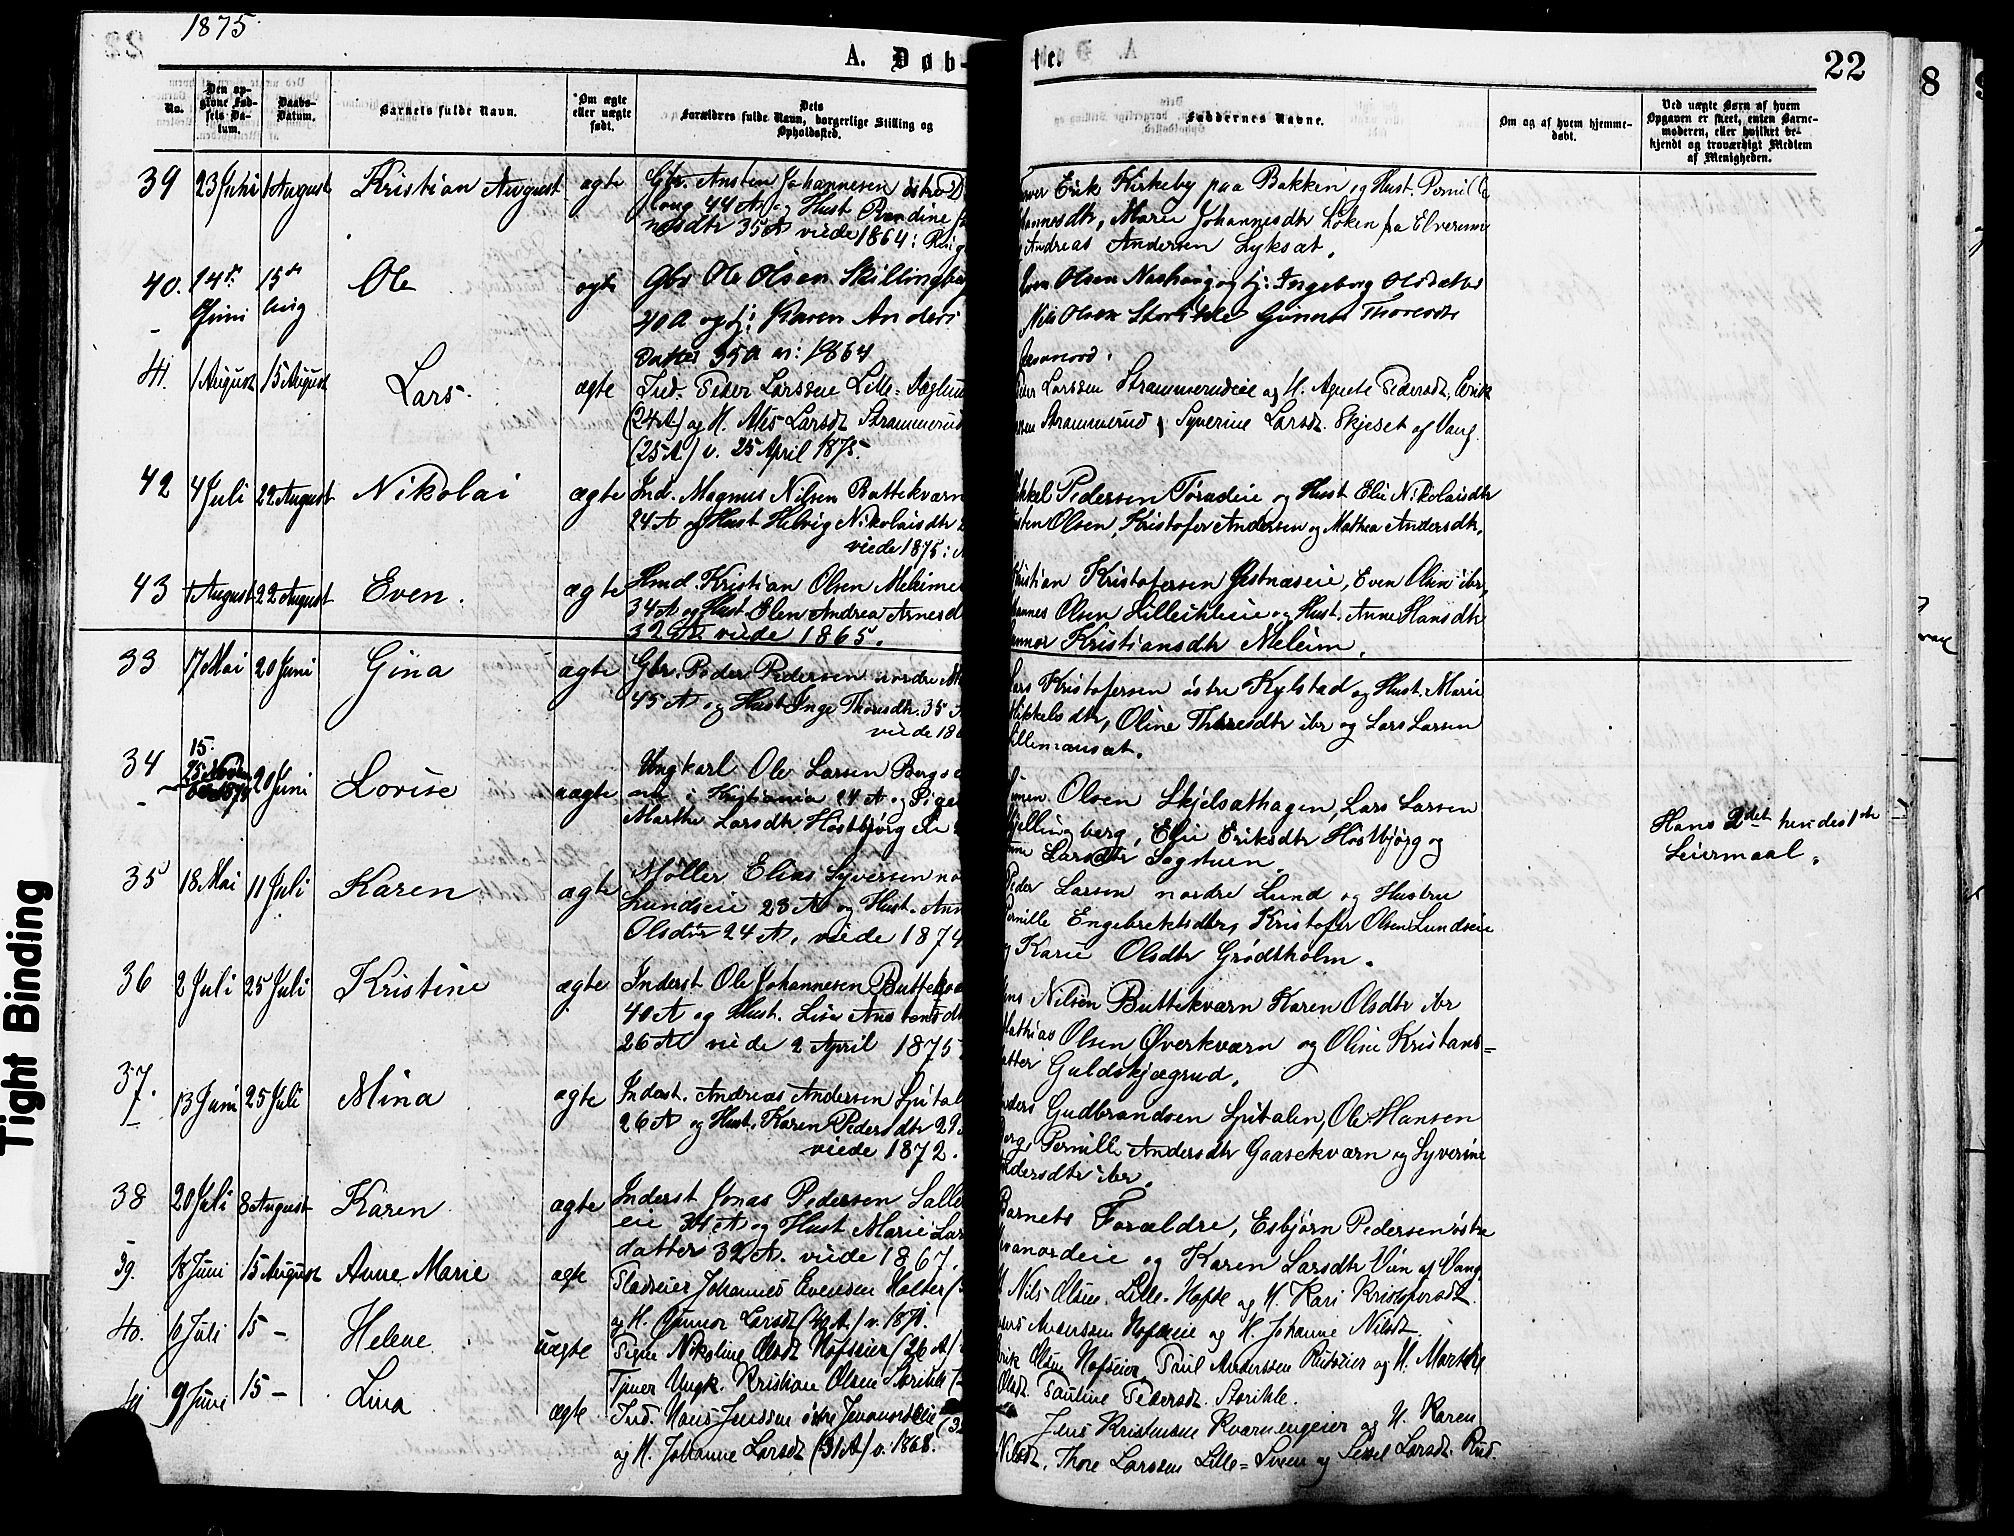 1875
A. Døb-
te.
22
8
No.
Den op-
givne Fød-
sels Da-
tum.
Daabs-
Datum.
Barnets fulde Navn.
Om ægte
eller uægte
født.
Dets
Forældres fulde Navn, borgerlige Stilling og
Opholdssted.
Faddernes Navne.
Om og af hvem hjemme-
døbt.
Ved uægte Børn af hvem
Opgaven er skeet, enten Barne-
moderen, eller hvilket be-
kjendt og troværdigt Medlem
af Menigheden.
39 23 Juni 1 August Kristian August ægte Gbr. Austen Johannesen østre
44 A og Hust Randine
35 A viede 1864
Erik Kirkeby paa Bakken og Hust. Pernille
Marie Johannesdtr Løken fra Elverum
Andreas Andersen Lyksæt.
40. 14de Juni 15de Aug Ole ægte Gbr Ole Olsen Skillingberg
40 A og h: Karen Anders
datter 35 A v: 1864
Olsen Nashaug og h: Ingeborg Olsdatter
Olsen Storihle Gunnor Thoresdtr
41. 1 August 15 August Lars ægte Ind. Peder Larssen Lille-
(24 A) og H. Alis Larsdt. Strammerud
(25 A) v. 25 April 1875.
Larssen Strammerudeie og H. Agnete Pedersdt. Erik
Strammerud, Syverine Larsdt. Skjeset af Vang.
42 4 Juli 22 August Nikolai ægte Ind. Magnus Nilsen Buttekværn
24 A og Hust Helvig Nikolaisdtr
viede 1875
Pedersen Torudeie og Hust Elie Nikolaisdtr
Olsen, Kristofer Andersen og Mathea Andersdtr.
43 1 August 22 August Even. ægte Hmd. Kristian Olsen Meleim
34 A og Hust. Elen Andrea Arnesd
32 A. viede 1865.
Kristian Kristofersen Gjestnæseie, Even Olsen ibr,
Olsen Lilleihleeie og Hust. Anne Hansdtr
Kristiansdtr Meleim.
33 17 Mai 20 Juni Gina ægte Gbr. Peder Pedersen nordre
45 A og Hust Inge Thoresdtr. 35 A
viede 186
Lars Kristofersen østre Kylstad og Hust. Marie
Mikkelsdtr, Oline Thoresdtr ibr og Lars Larsen
Lillemansæt.
34 15. 20 Juni Lovise uægte Ungkarl Ole Larsen
i Kristiania 24 A og Pige
Marthe Larsdtr Hostbjørg
Olsen Skjelsæthagen, Lars Larsen
Skjellingberg, Elie Eriksdtr Hostbjørg og
Larsdtr Sagstuen.
Hans 2det hendes 1ste
Leiermaal.
35 18 Mai 11 Juli Karen ægte Møller Elias Syversen
Lundseie 23 A og Hust. Anne
Olsdtr 24 A, viede 1874
Peder Larsen nordre Lund og Hustru
Pernille Engebretsdtr, Kristofer Olsen Lundseie
og Karie Olsdtr Grødtholm.
36 2 Juli 25 Juli Kristine ægte Inderst Ole Johannesen Buttekvær
40 A og Hust. Lise
26 A viede 2 April 1875
Nilsen Buttekværn Karen Olsdtr ibr
Mathias Olsen Øverkværn og Oline Kristians=
datter Guldskjægrud.
37. 13 Juni 25 Juli Mina ægte Inderst. Andreas Andersen Spital
26 A og Hust. Karen Pedersdtr 29
viede 1872.
Anders Gudbrandsen Spitalen, Ole Hansen
Berg, Pernille Andersdtr Gaasekværn og Syverine
Andersdtr ibr.
38 20 Juli 8 August Karen ægte Inderst Jonas Pedersen
eie 34 A og Hust Marie Lars
datter 32 A. viede 1867.
Barnets Forældre, Esbjørn Pedersen østre
og Karen Larsdtr Vien af Vang
39. 18 Juni 15 August Anne Marie ægte Pladseier Johannes Evensen
og H. Gunnor Larsdt (42 A) v. 1871.
Nils Olsen. Lille-Hofse og H. Kari Kristofersdt.
Anderssen Hofseie og H. Johanne Nilsdt.
40. 10 Juli 15 – Helene uægte Pigen Nikoline Olsdt Hofseier (26 A)
Tjener Ungk. Kristian Olsen Storihle
Erik Olsen Hofseier, Paul Anderssen Rudseier og H. Marthe
Olsdt. Pauline Pedersdt. Storihle.
41 9 Juni 15 – Lina ægte Ind. Hans Jenssen østre Jevanordeie
og H. Johanne Larsdt (31 A) v. 1868.
Jens Kristensen Kværnengeier og H. Karen
Nilsdt. Thore Larssen Lille= og Sissel Larsdt. Rud.
Tight Binding